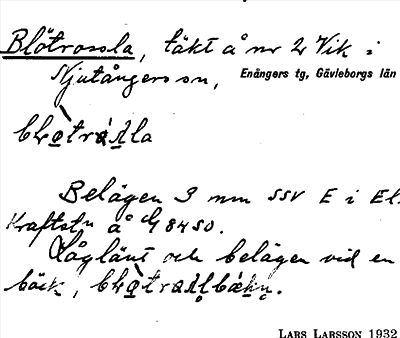 Blötrossla, täkt å nr 2 Vik i
Njutångers sn, Enångers tg, Gävleborgs län
Belägen 3 mm SSV E i El.
Kraftstn å
Låglänt och belägen vid en
bäck,
LARS LARSSON 1932